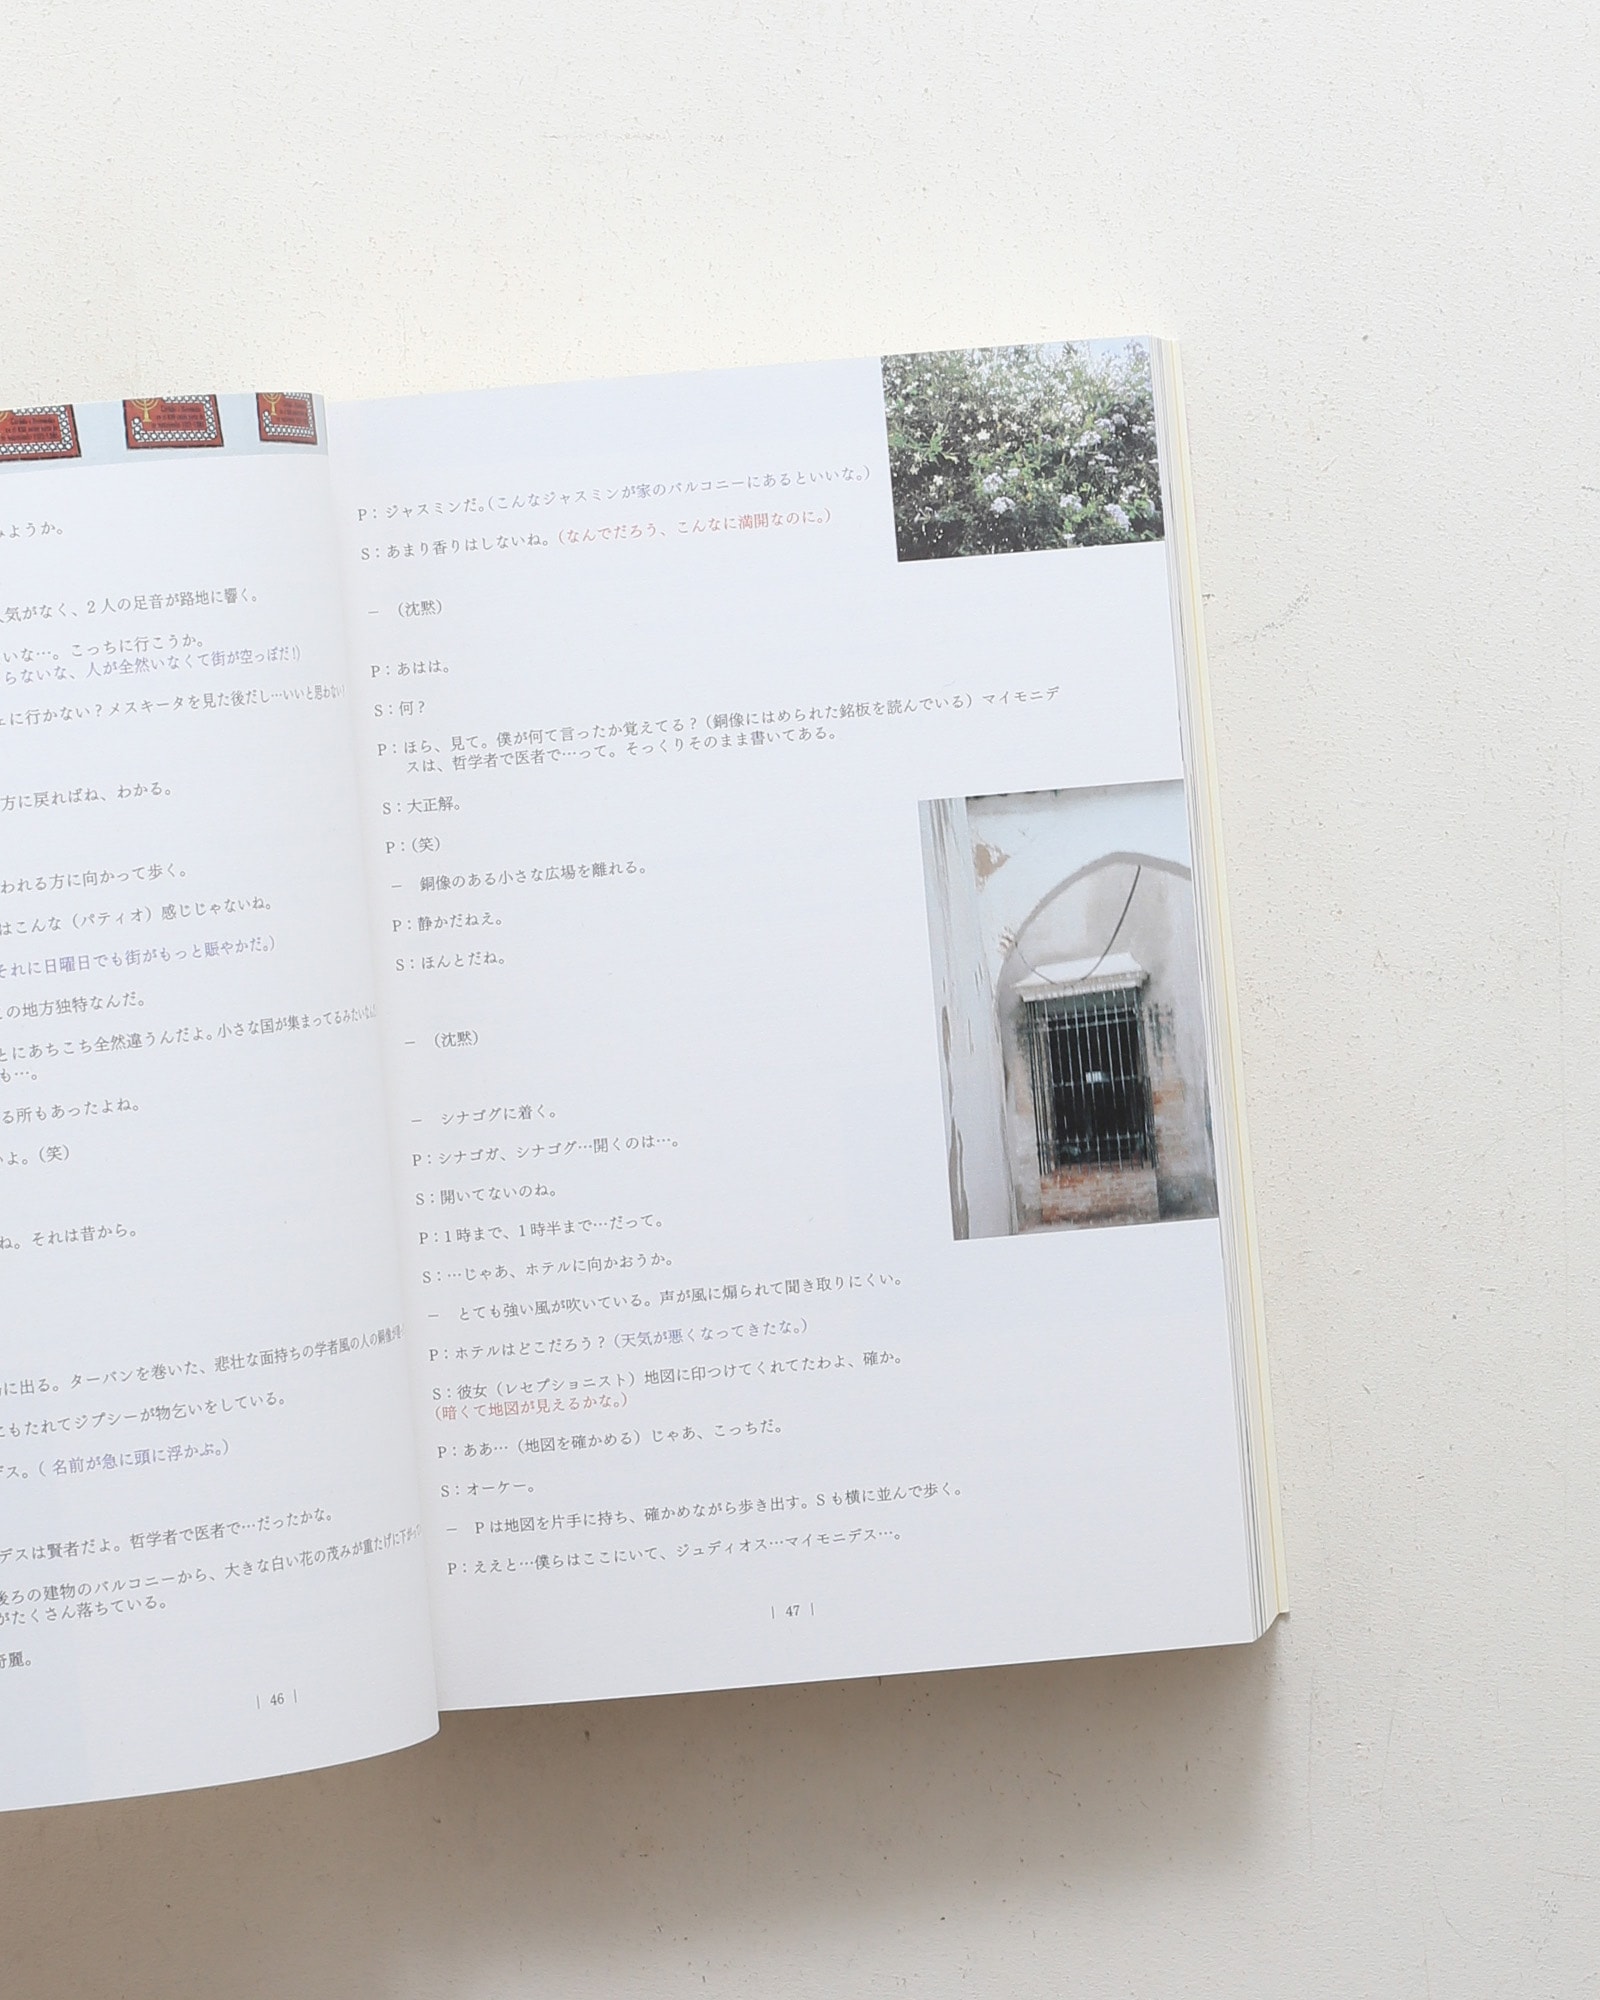 みようか。
人気がなく、2人の足音が路地に響く。
いな…。こっちに行こうか。
らないな、人が全然いなくて街が空っぽだ!)
ェに行かない？メスキータを見た後だし…いいと思わない
方に戻ればね、わかる。
われる方に向かって歩く。
はこんな（パティオ）感じじゃないね。
それに日曜日でも街がもっと賑やかだ。)
の地方独特なんだ。
とにあちこち全然違うんだよ。小さな国が集まってるみたいなん
も…。
る所もあったよね。
よ。（笑）
ね。それは昔から。
に出る。ターバンを巻いた、悲壮な面持ちの学者風の人の銅像が
にもたれてジプシーが物乞いをしている。
デス。( 名前が急に頭に浮かぶ。)
デスは賢者だよ。哲学者で医者で…だったかな。
後ろの建物のバルコニーから、大きな白い花の茂みが重たげに下がって
がたくさん落ちている。
奇麗。
| 46 |
P：ジャスミンだ。（こんなジャスミンが家のバルコニーにあるといいな。）
S：あまり香りはしないね。（なんでだろう、こんなに満開なのに。）
－ （沈黙）
P：あはは。
S：何？
P：ほら、見て。僕が何て言ったか覚えてる？（銅像にはめられた銘板を読んでいる）マイモニデ
スは、哲学者で医者で…って。そっくりそのまま書いてある。
S：大正解。
P：（笑）
－ 銅像のある小さな広場を離れる。
P：静かだねえ。
S：ほんとだね。
－ （沈黙）
－ シナゴグに着く。
P：シナゴガ、シナゴグ…開くのは…。
S：開いてないのね。
P：1時まで、1時半まで…だって。
S：…じゃあ、ホテルに向かおうか。
－ とても強い風が吹いている。声が風に煽られて聞き取りにくい。
P：ホテルはどこだろう？（天気が悪くなってきたな。）
S：彼女（レセプショニスト）地図に印つけてくれてたわよ、確か。
（暗くて地図が見えるかな。）
P：ああ…（地図を確かめる）じゃあ、こっちだ。
S：オーケー。
－ Pは地図を片手に持ち、確かめながら歩き出す。Sも横に並んで歩く。
P：ええと…僕らはここにいて、ジュディオス…マイモニデス…。
| 47 |